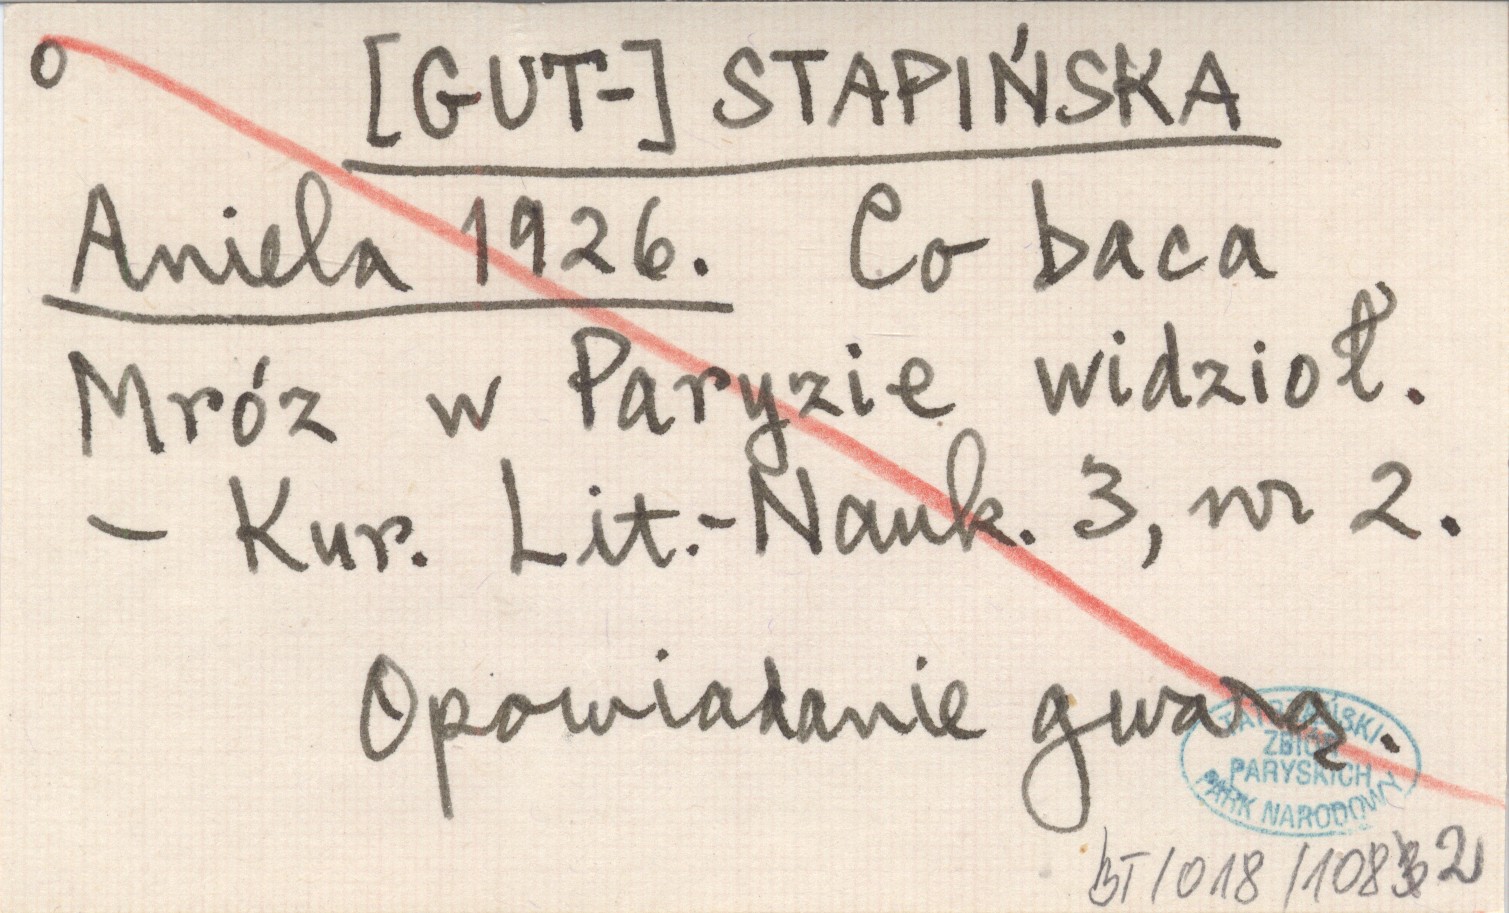 o [GUT-] STAPIŃSKA
Aniela 1926. Co baca
Mróz w Paryzie widzioł.
- Kur. Lit.-Nauk. 3, nr 2.
Opowiadanie gwarą.
TATRZAŃSKI
ZBIÓR
PARYSKICH
PARK NARODOWY
BT/018/1082